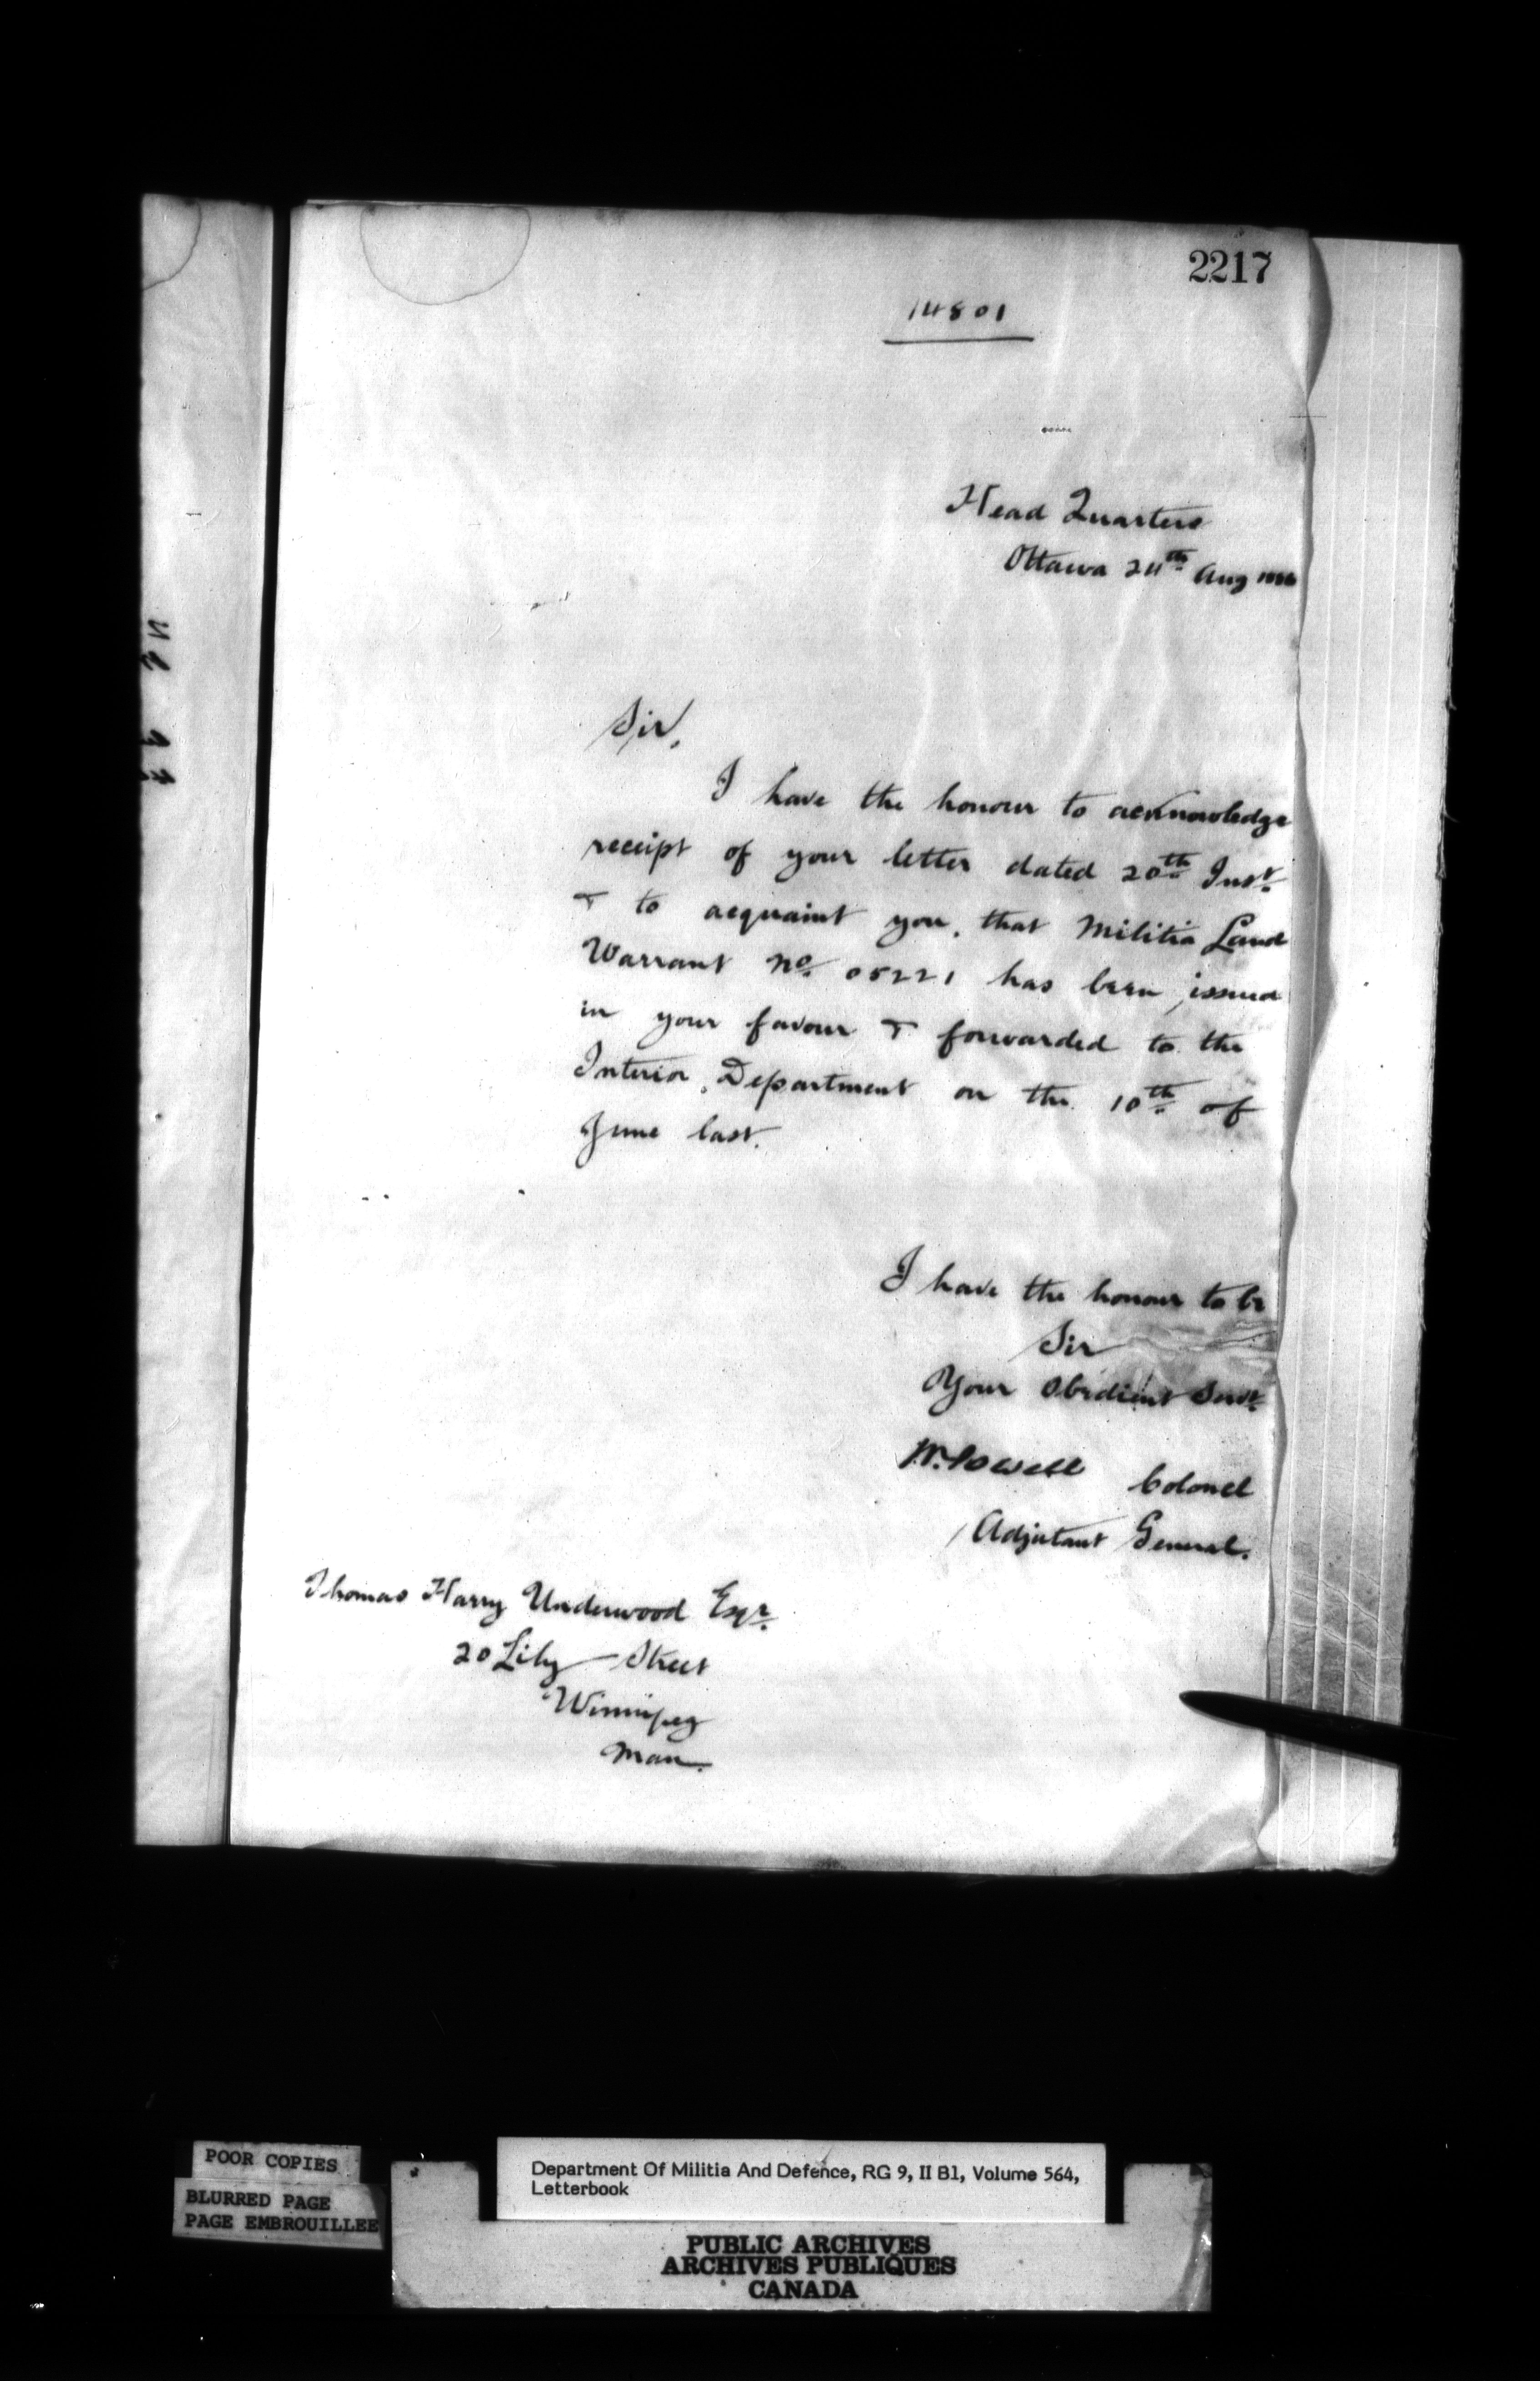 2217
14801
Head Quarters
Ottawa 24th Aug
Sir,
I have the honour to acknowledge
receipt of your letter dated 20th Inst.
& to acquaint you, that Militia Land
Warrant No. 05221 has been issued
in your favour & forwarded to the
Interior Department on the 10th of
June last.
I have the honour to be
Sir
Your Obedient Servt.
W. Powell Colonel
Adjutant General.
Thomas Harry Underwood Esqr.
20 Lily Street
Winnipeg
Man.
POOR COPIES
BLURRED PAGE
PAGE EMBROUILLEE
Department Of Militia And Defence, RG 9, II B1, Volume 564,
Letterbook
PUBLIC ARCHIVES
ARCHIVES PUBLIQUES
CANADA